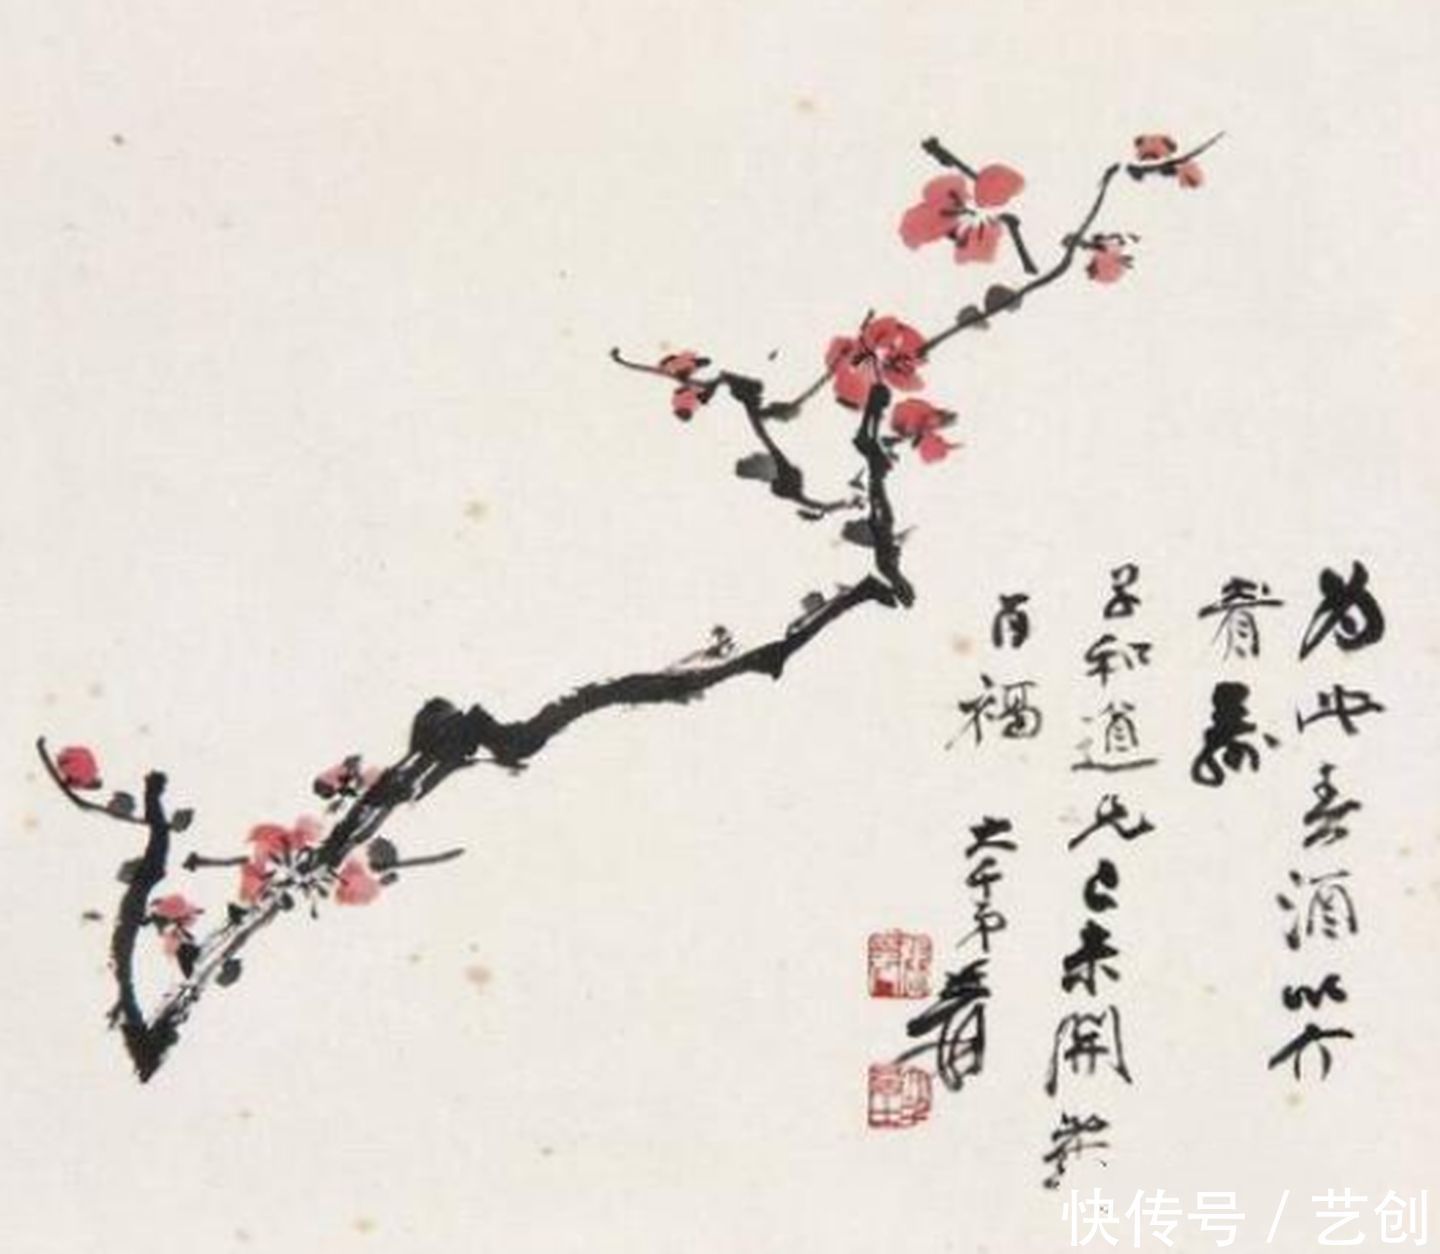 為此春酒以介
眉壽
子和道兄己未開歲
百福 大千弟爰
快传号 / 艺创